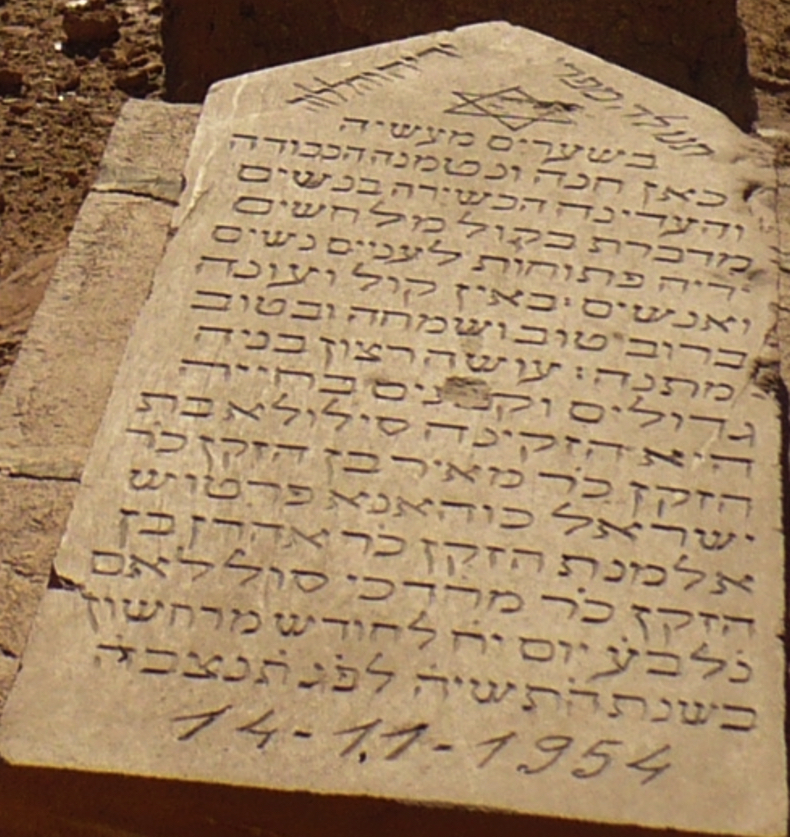 ויהללוה
בשערים מעשיה
כאן חנה ונטמנה הכבודה
והעדינה הכשירה בנשים
מדברת בקול מלחשים
ידיה פתוחות לעניים נשים
ואנשים באין קול ועונה
ברוב טוב ושמחה ובטוב
מתנה: עושה רצון בניה
גדולים וקטנים בחייה
היא הזקינה סילולא בת
הזקן כר מאיר בן הזקן כר
ישראל כוהאנא פרטוש
אלמנת הזקן כר אהרן בן
הזקן כר מרדכי סוללאם
נלבע יום יח לחודש מרחשון
בשנת התשיה לפג תנצבה
14-11-1954